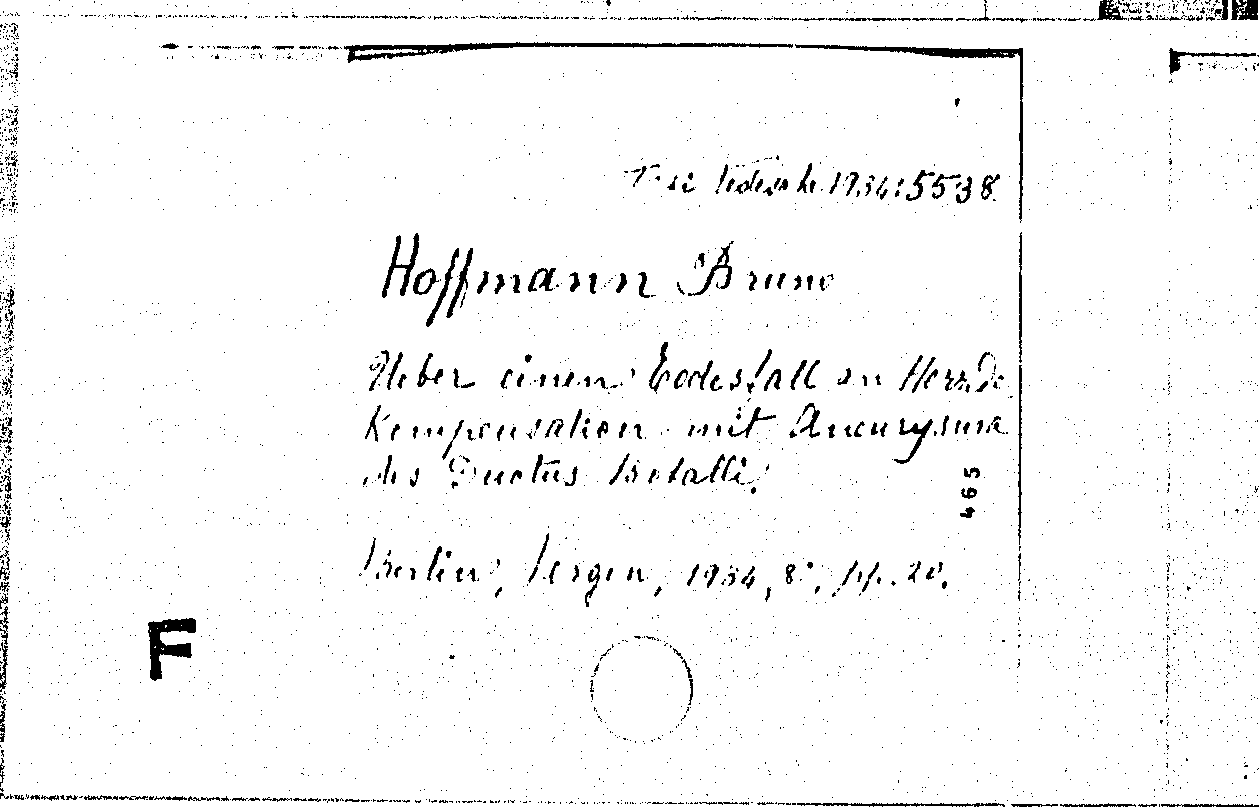 Tesi tedesche 1934:5538
Hoffmann Bruno
Ueber einen Todesfall an Herz De
Kompensation mit Aneurysma
des Ductus Botalli.
465
Berlin, 1934, 8°, pp. 20.
F